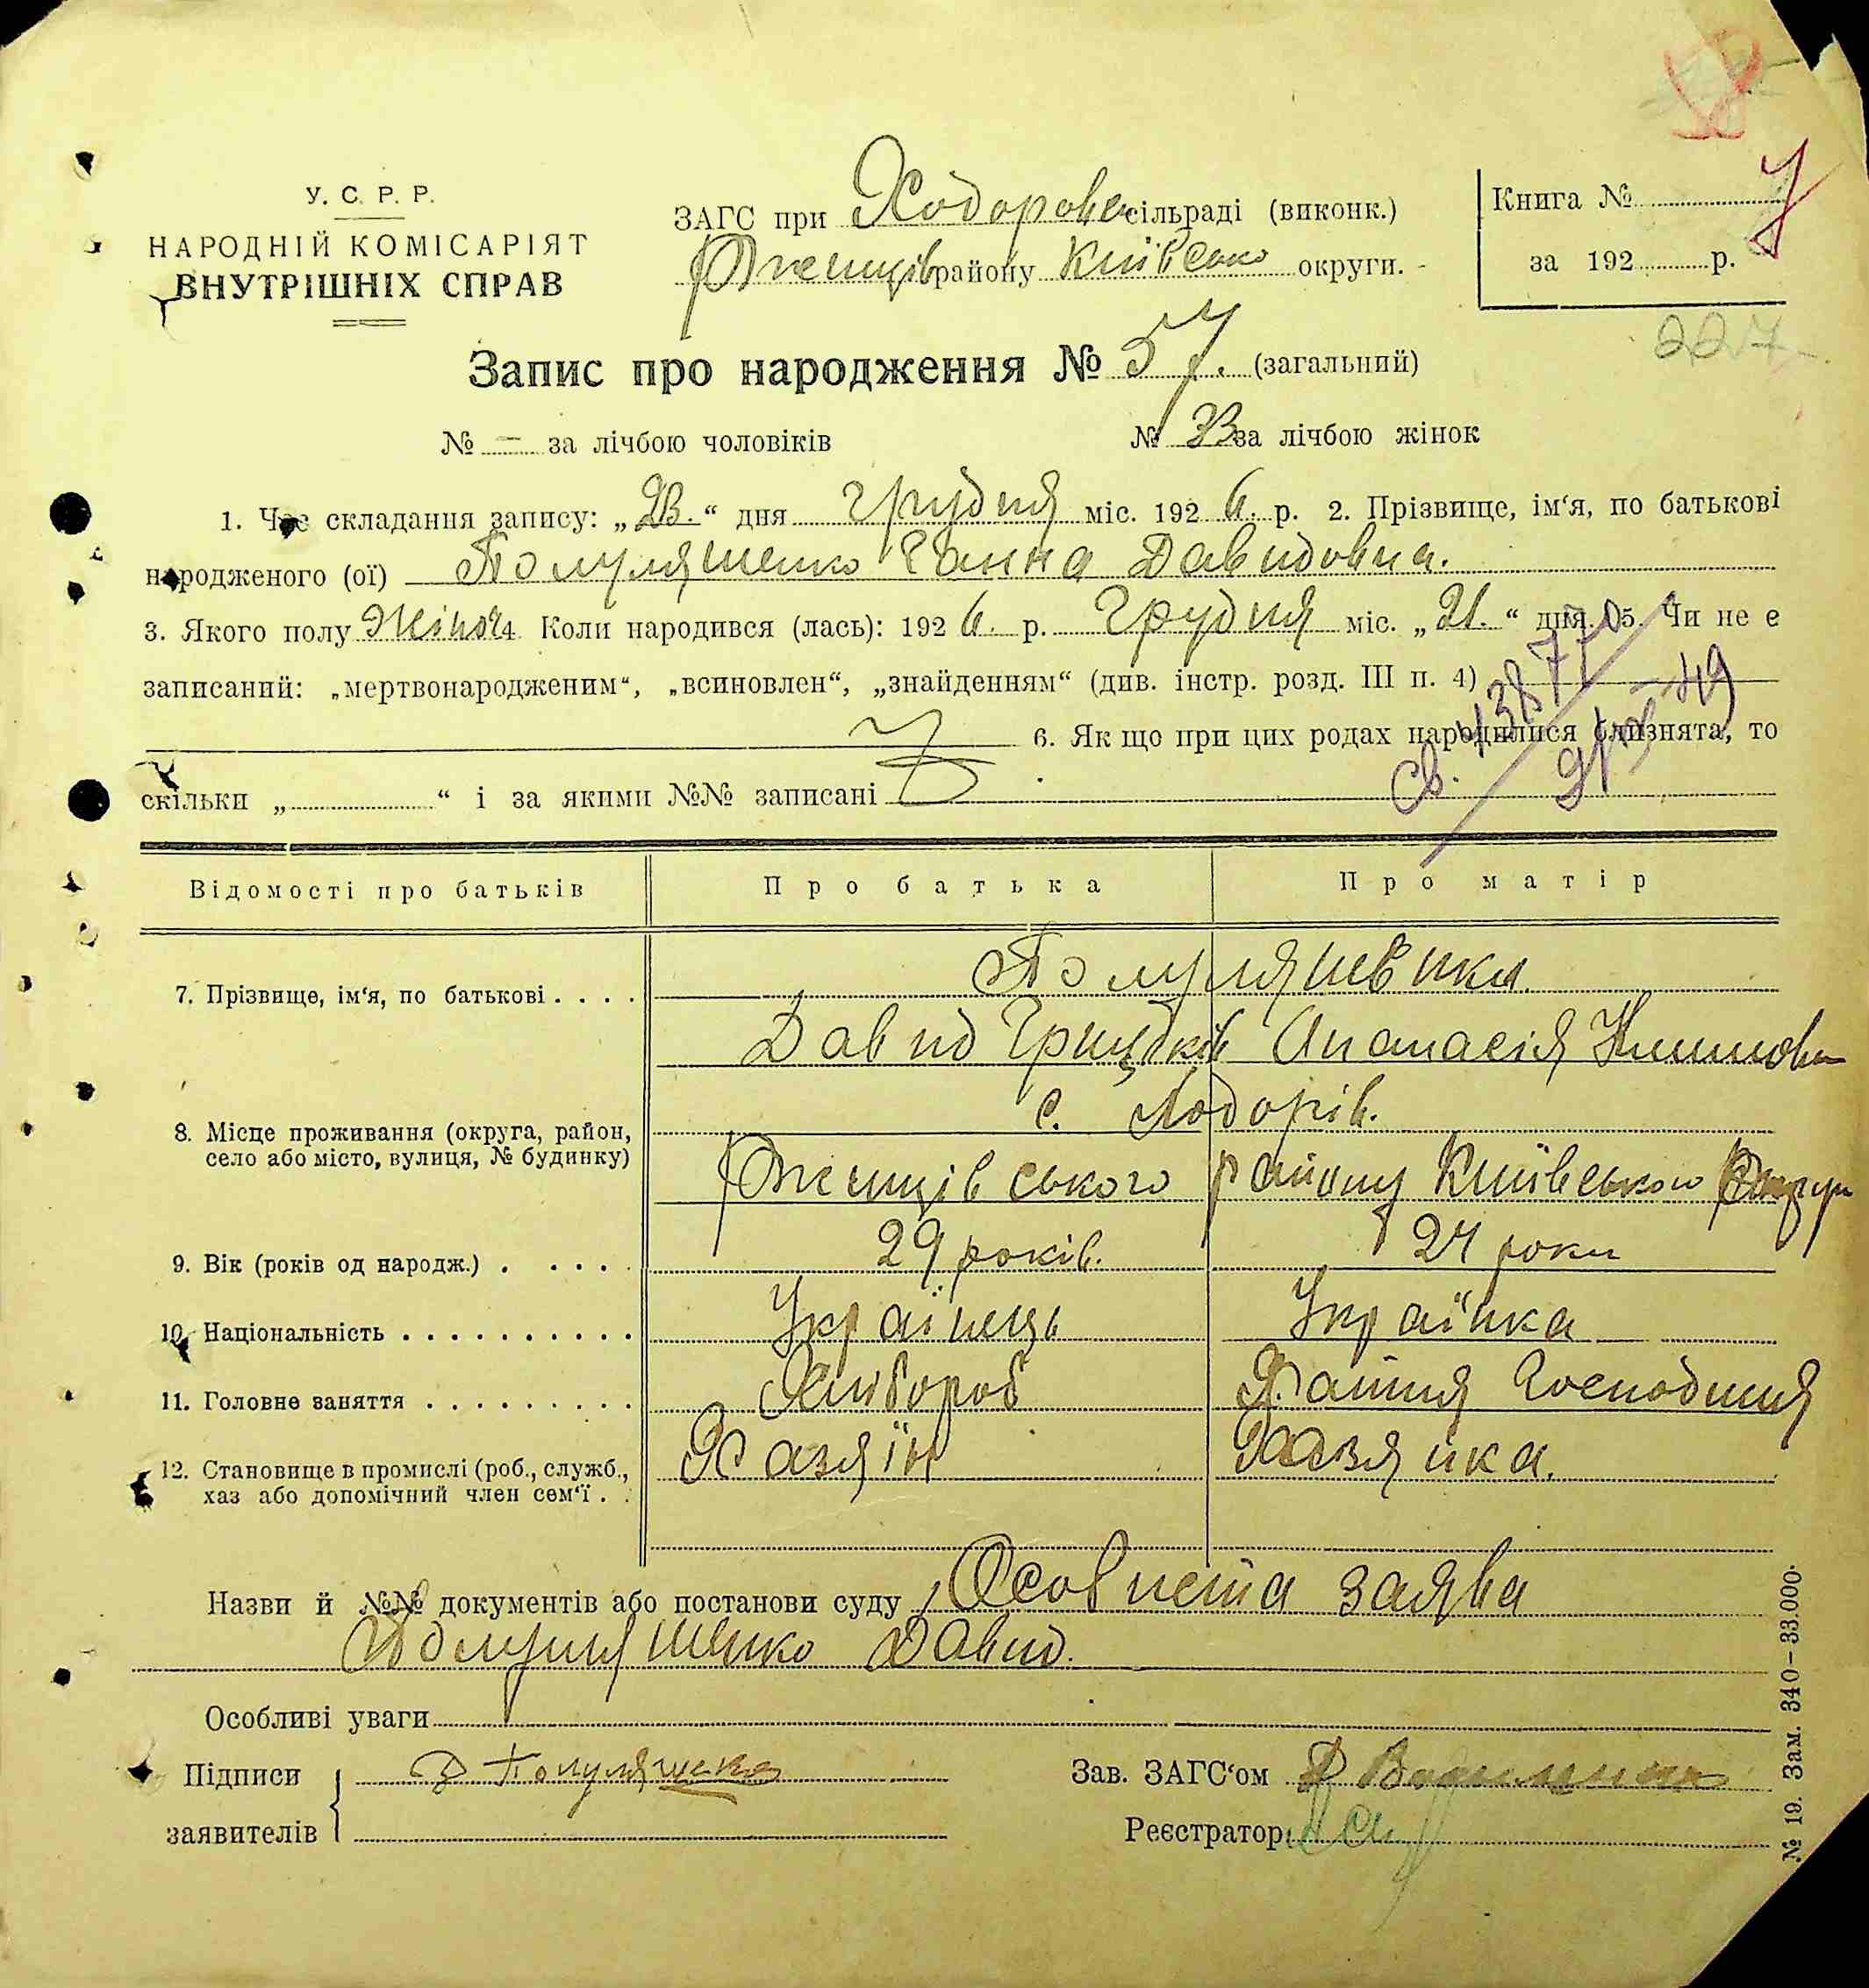 У. С. Р. Р.
НАРОДНІЙ КОМІСАРІЯТ
ВНУТРІШНІХ СПРАВ
ЗАГС при Ходоровс сільраді (виконк.)
Ржищів району Київсько округи.
Книга №
за 192 р.
7
227
Запис про народження № 57. (загальний)
№ – за лічбою чоловіків № 33 за лічбою жінок
1. Час складання запису: „23.“ дня грудня міс. 1926. р. 2. Прізвище, ім‘я, по батькові
народженого (ої) Помуляшенко Ганна Давидовна.
3. Якого полу жіноч 4. Коли народився (лась): 1926. р. Грудня міс. „21.“ дня. 5. Чи не є
записаний: „мертвонародженим“, „всиновлен“, „знайденням“ (див. інстр. розд. III п. 4)
6. Як що при цих родах народилися близнята, то
скільки „ “ і за якими №№ записані
Відомості про батьків Про батька Про матір
7. Прізвище, ім‘я, по батькові
Давид Грицьків Анастасія
с. Ходорів.
8. Місце проживання (округа, район,
село або місто, вулиця, № будинку)
Ржищівського району Київської Округи
9. Вік (років од народж.) 29 років. 24 роки
10. Національність Українець Українка
11. Головне заняття Хлібороб Хатня Господиня
12. Становище в промислі (роб., служб.,
хаз або допомічний член сем‘ї
Хазяїн Хазяйка.
Назви й №№ документів або постанови суду Особиста заява
Помуляшенко Давид.
Особливі уваги
Підписи
заявителів
Д Помуляшенко
Зав. ЗАГС‘ом
Реєстратор
№ 19. Зам. 340–33.000.